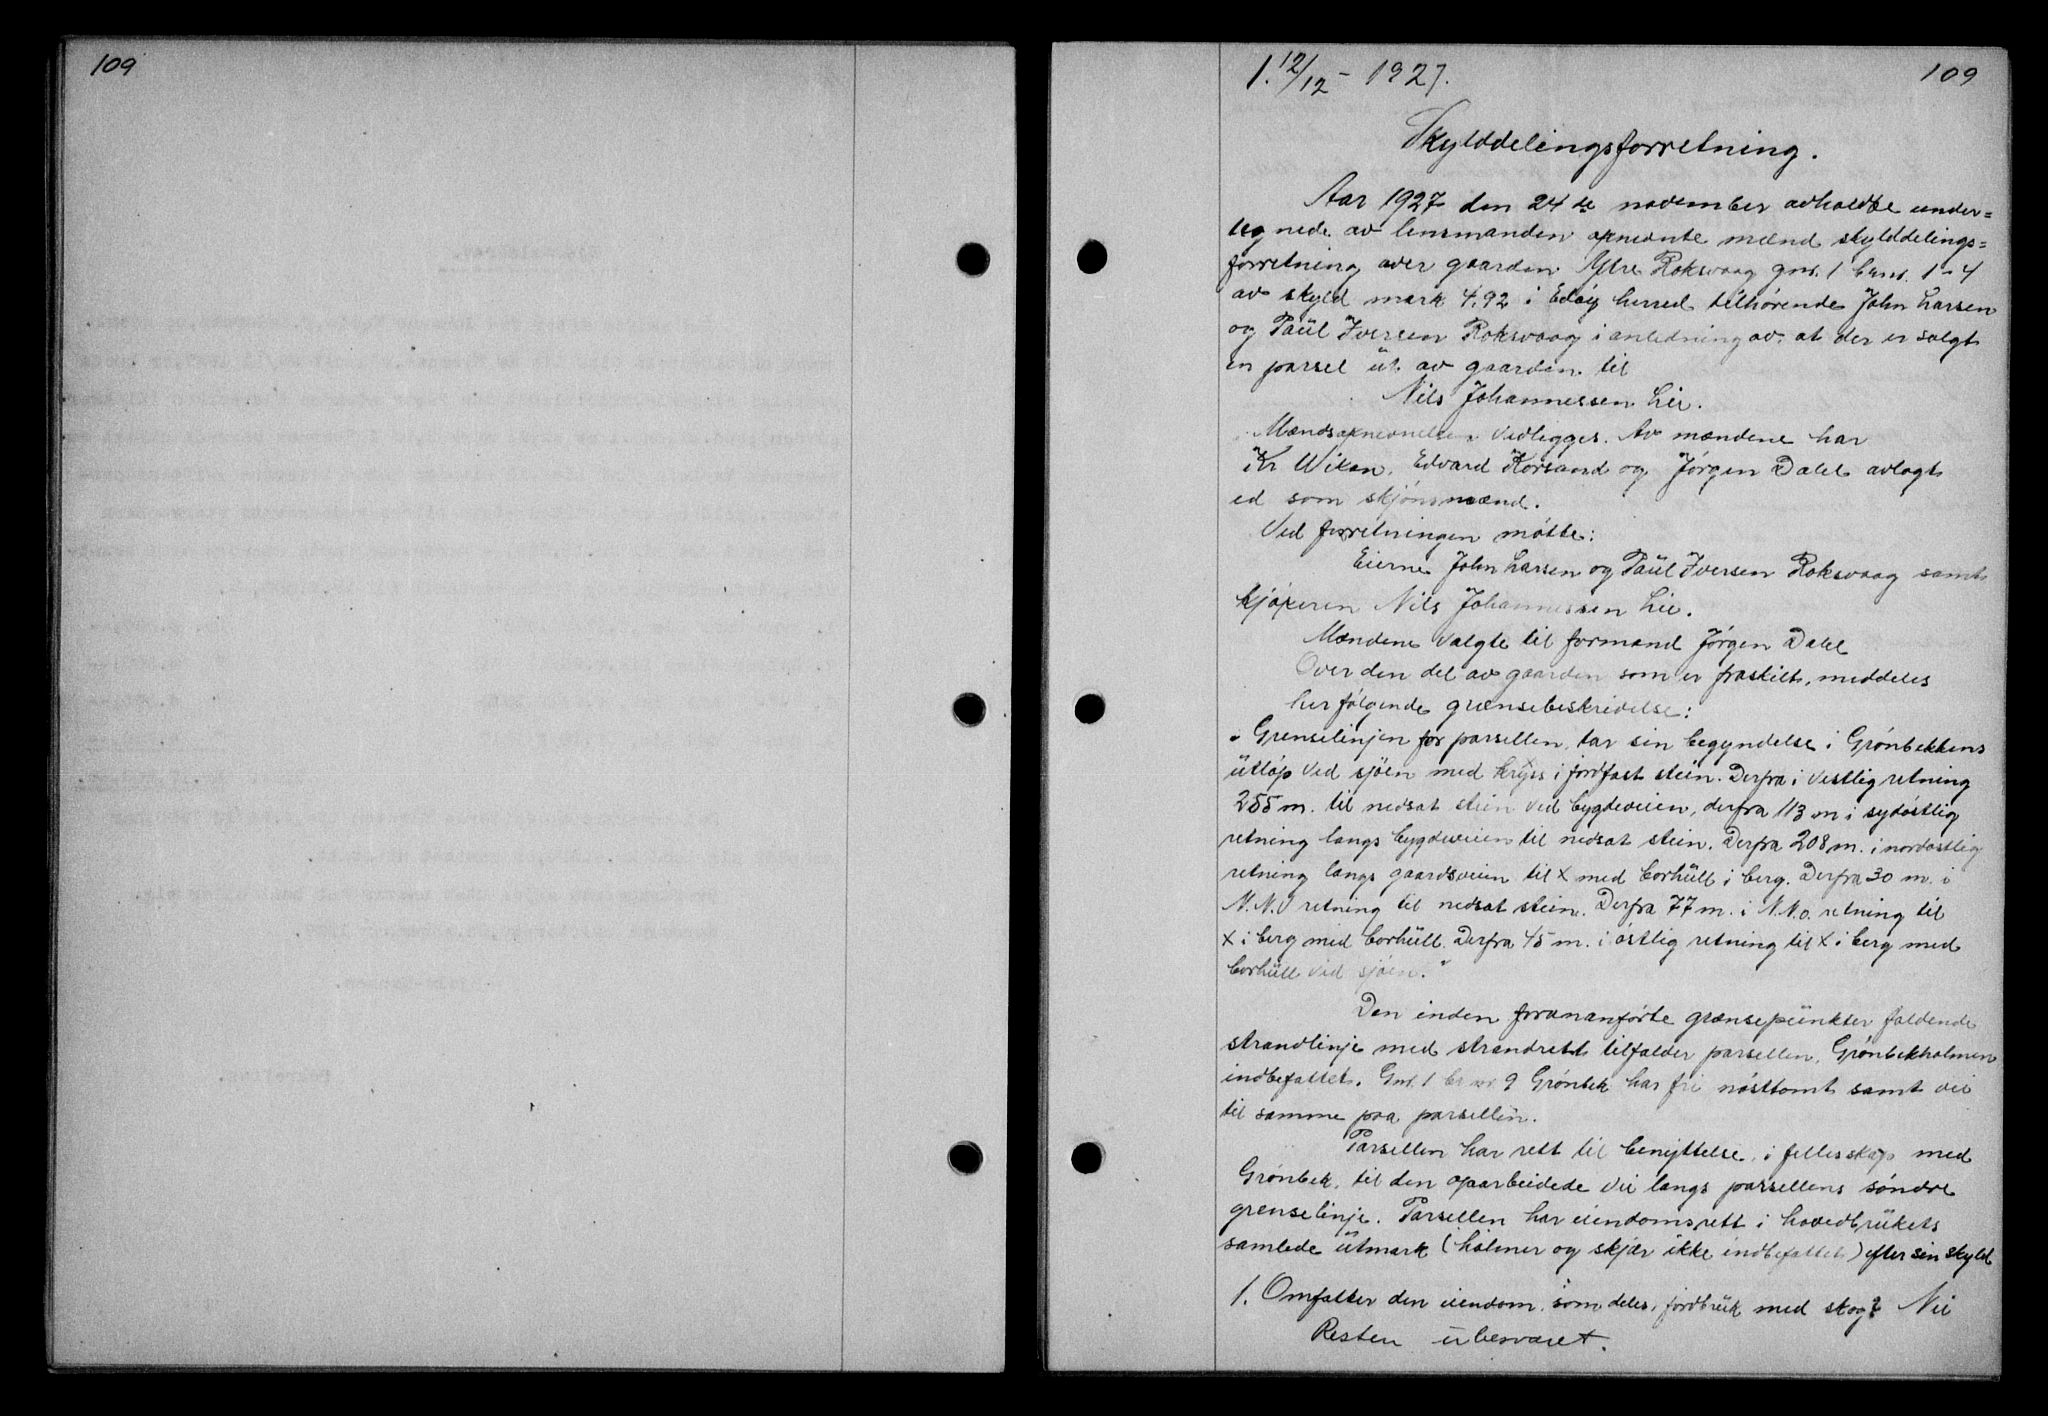 109
1. 12/12 - 1927.
109
Skylddelingsforretning.
Aar 1927 den 24de november avholdte under=
tegnede av lensmanden opnævnte mænd skylddelings=
forretning over gaarden Ytre Roksvaag gnr. 1 brnr. 1-4
av skyld mark 4.92 i Edøy herred tilhørende John Larsen
og Paul Iversen Roksvaag i anledning av at der er solgt
en parsel ut av gaarden til
Nils Johannessen Lie.
Mændsopnevnelsen vedlegges. Av mændene har
Kr Wiken, Edvard Korsand og Jørgen Dalel avlagt
ed som skjønsmænd.
Ved forretningen møtte:
Eierne John Larsen og Paul Iversen Roksvaag samt
kjøperen Nils Johannessen Lie.
Mændene valgte til formand Jørgen Dalel
Over den del av gaarden som er fraskilt, meddeles
her følgende grænsebeskrivelse:
"Grenselinjen for parsellen tar sin begyndelse i Grønbekkens
utløp ved sjøen med kryss i jordfast stein. Derfra i vestlig retning
255 m. til nedsat stein ved bygdeveien, derfra 113 m i sydøstlig
retning langs bygdeveien til nedsat stein. Derfra 208 m. i nordøstlig
retning langs gaardsveien til x med borhull i berg. Derfra 30 m. i
N.N.V retning til nedsat stein. Derfra 77 m. i N.N.o. retning til
x i berg med borhull. Derfra 45 m. i østlig retning til x i berg med
borhull ved sjøen."
Den inden forananførte grænsepunkter faldende
strandlinje med strandrett tilfalder parsellen, Grønbekholmen
indbefattet. Gnr. 1 br nr. 9 Grønbek har fri nøsttomt samt vei
til samme paa parsellen.
Parsellen har rett til benyttelse i fellesskap med
Grønbek, til den oparbeidede vei langs parsellens søndre
grenselinje. Parsellen har eiendomsrett i hovedbrukets
samlede utmark (holmer og skjær ikke indbefattet) efter sin skyld
1. Omfatter den eiendom, som deles, jordbruk med skog? Nei
Resten ubesvaret.